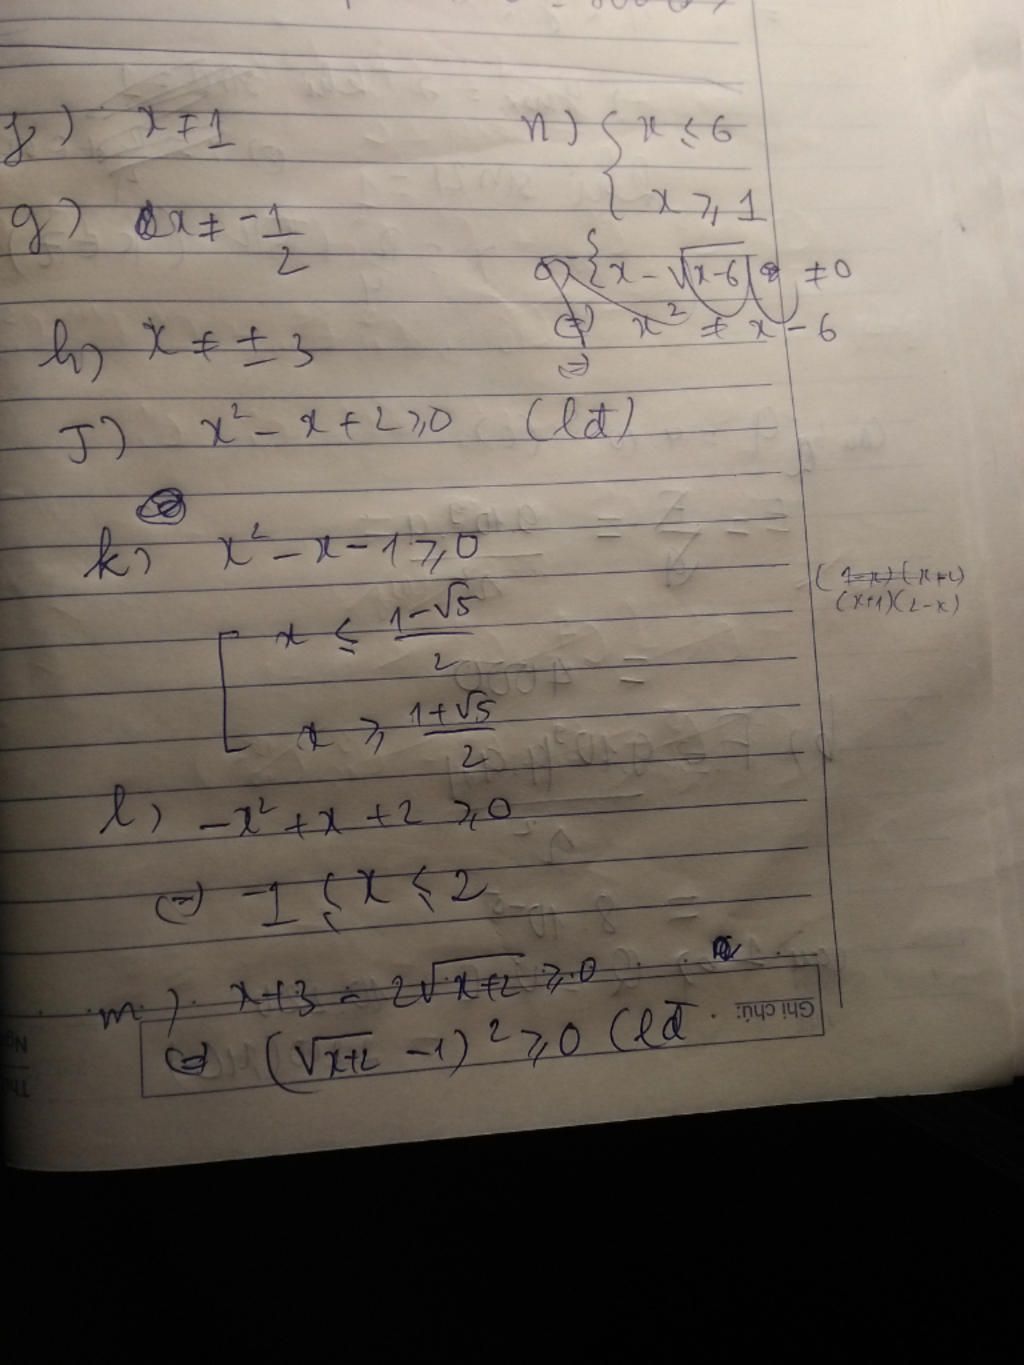 f) x ≠ 1
g) x ≠ -1/2
h) x ≠ ± 3
J) x² - x + 2 ≥ 0 (lđ)
k) x² - x - 1 ≥ 0
x ≤ (1-√5)/2
x ≥ (1+√5)/2
l) -x² + x + 2 ≥ 0
(=) -1 ≤ x ≤ 2
m) x+3 - 2√(x+2) ≥ 0
(√(x+2) - 1)² ≥ 0 (lđ
Ghi chú:
n) { x ≤ 6
x ≥ 1
{ x - √(x-6) ≠ 0
(=) x² ≠ x - 6
(=)
(1-x)(x+2)
(x+1)(2-x)